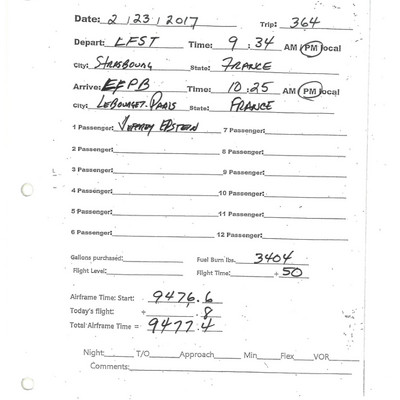 Date: 2 / 23 / 2017 Trip: 364
Depart: LFST Time: 9 : 34 AM PM local
City: STRASBOURG State: FRANCE
Arrive: EFPB Time: 10 : 25 AM PM local
City: LEBOURGET-PARIS State: FRANCE
1 Passenger: JEFFREY EPSTEIN 7 Passenger:
2 Passenger: 8 Passenger:
3 Passenger: 9 Passenger:
4 Passenger: 10 Passenger:
5 Passenger: 11 Passenger:
6 Passenger: 12 Passenger:
Gallons purchased: Fuel Burn lbs. 3404
Flight Level: Flight Time: + 50
Airframe Time: Start: 9476.6
Today's flight: + .8
Total Airframe Time = 9477.4
Night: T/O Approach Min Flex VOR
Comments: